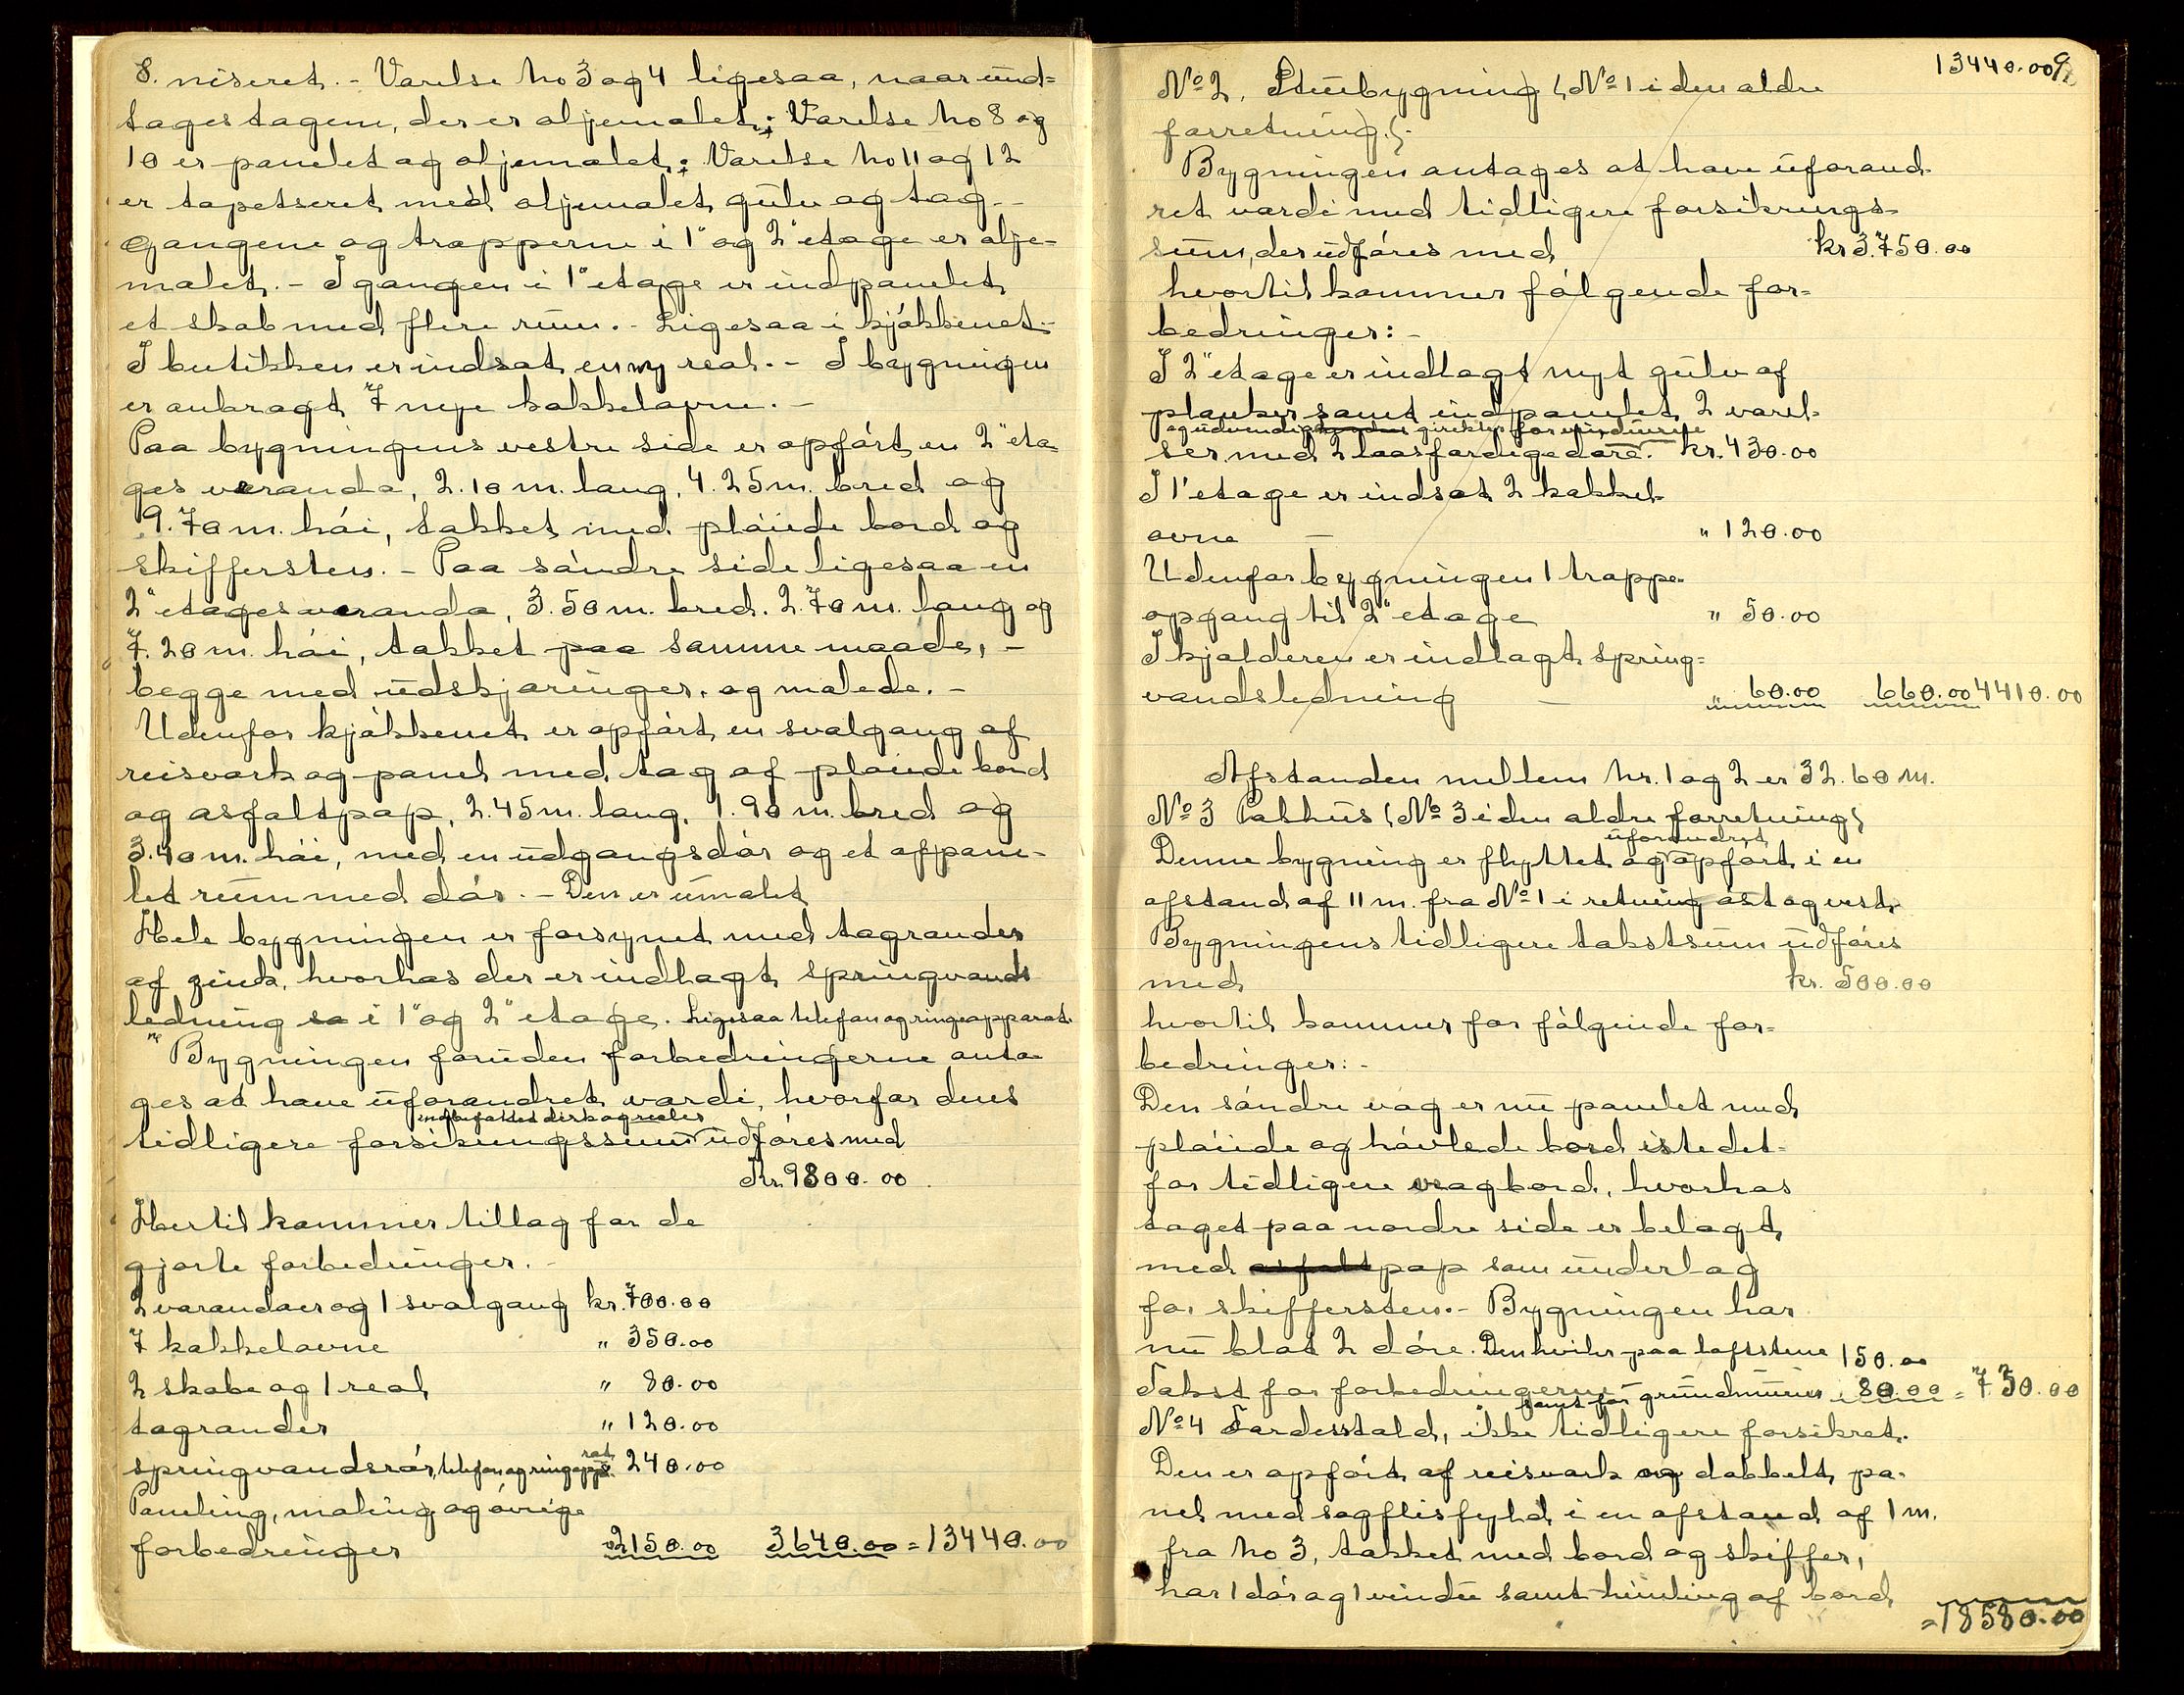 8. niseret. - Værelse No 3 og 4 ligesaa, naar und=
tages tagene, der er oljemalet; Værelse No 8 og
10 er panelet og oljemalet; Værelse No 11 og 12
er tapetseret med oljemalet gulv og tag. -
Gangene og trapperne i 1" og 2" etage er olje=
malet. - I gangen i 1" etage er indpanelet
et skab med flere rum. - Ligesaa i kjøkkenet. -
I butikken er indsat en ny reol. - I bygningen
er anbragt 7 nye kakkelovne. -
Paa bygningens vestre side er opført en 2" eta
ges veranda, 2.10 m. lang, 4.25 m. bred og
9.70 m. høi, takket med pløiede bord og
skiffersten. - Paa søndre side ligesaa en
2" etages veranda, 3.50 m. bred. 2.70 m. lang og
7.20 m. høi, takket paa samme maade, -
begge med udskjæringer, og malede. -
Udenfor kjøkkenet er opført en svalgang af
reisværk og panel med tag af pløiede bord
og asfaltpap, 2.45 m. lang, 1.90 m. bred og
3.40 m. høi, med en udgangsdør og et afpane-
let rum med dør. - Den er umalet
Hele bygningen er forsynet med tagrender
af zink, hvorhos der er indlagt springvands
ledning sa i 1" og 2" etage. Ligesaa telefon og ringeapparat.
Bygningen foruden forbedringerne anta
ges at have uforandret værdi, hvorfor dens
indbefattet disk og reoler
tidligere forsikringssum udføres med
Kr. 9800.00
Hertil kommer tillæg for de
gjorte forbedringer. -
2 varandaer og 1 svalgang kr. 700.00
7 kakkelovne " 350.00
2 skabe og 1 reol " 80.00
tagrender " 120.00
rat
springvandsrør, telefon og ringeappa " 240.00
Paneling, maling og øvrige
forbedringer " 2150.00 3640.00 = 13440.00
13440.00 9.
No 2. Stuebygning (No 1 i den ældre
forretning). -
Bygningen antages at have uforand-
ret værdi med tidligere forsikrings-
sum, der udføres med kr 3.750.00
hvortil kommer følgende for=
bedringer: -
I 2" etage er indlagt nyt gulv af
planker samt indpanelet 2 værel-
og udvendig girekter for vinduerne
ser med 2 laasfærdige døre. kr. 430.00
I 1" etage er indsat 2 kakkel-
ovne - " 120.00
Udenfor bygningen 1 trappe-
opgang til 2" etage " 50.00
I kjælderen er indlagt spring=
vandsledning - " 60.00 660.00 4410.00
Afstanden mellem Nr. 1 og 2 er 32.60 m.
No 3 Pakhus (No 3 i den ældre forretning)
uforandret
Denne bygning er flyttet og opført i en
afstand af 11 m. fra No 1 i retning øst og vest.
Bygningens tidligere takstsum udføres
med kr. 500.00
hvortil kommer for følgende for=
bedringer: -
Den søndre væg er nu panelet med
pløiede og høvlede bord istedet=
for tidligere vragbord, hvorhos
taget paa nordre side er belagt
med asfaltpap som underlag
for skiffersten. - Bygningen har
nu blot 2 døre. Den hviler paa løfsstene 150.00
Takst for forbedringerne samt for grundmuren 80.00 = 730.00
No 4 Færdesstald, ikke tidligere forsikret.
Den er opført af reisværk og dobbelt pa-
nel med sagflisfyld i en afstand af 1 m.
fra No 3, takket med bord og skiffer,
har 1 dør og 1 vindu samt himling af bord
= 18580.00